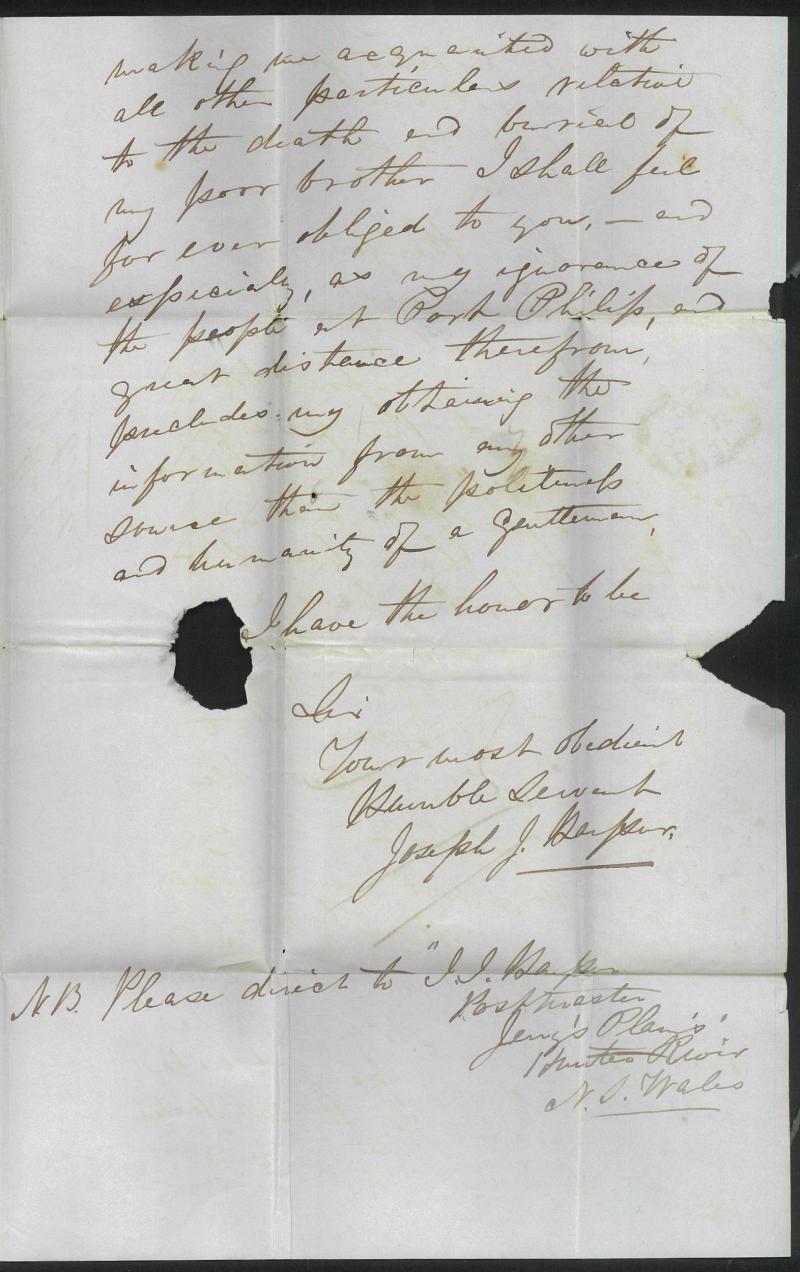 making me acquainted with
all other particulars relative
to the death and burial of
my poor brother I shall feel
for ever obliged to you, — and
especially, as my ignorance of
the people at Port Philip, and
great distance therefrom,
precludes my obtaining the
information from any other
source than the politeness
and humanity of a Gentleman,
I have the honor to be
Sir
Your most obedient
Humble Servant
Joseph J. Harpur.
N.B. Please direct to "J.J. Harpur
Postmaster
Jerry's Plains"
Hunter River
N. S. Wales